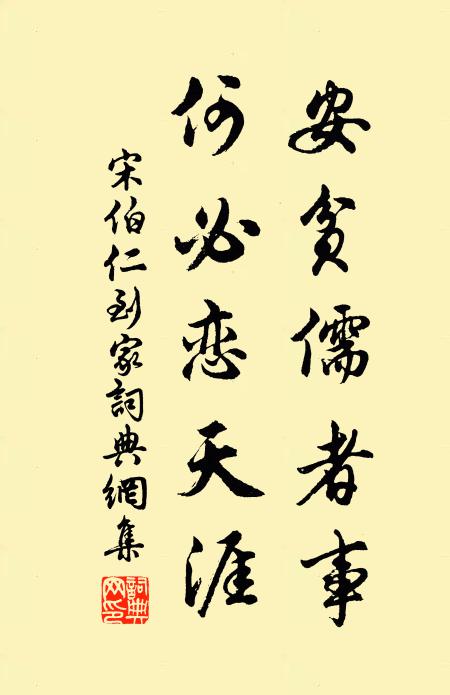 安贫儒者事
何必恋天涯
宋伯仁到家詞典網集
詞典網印